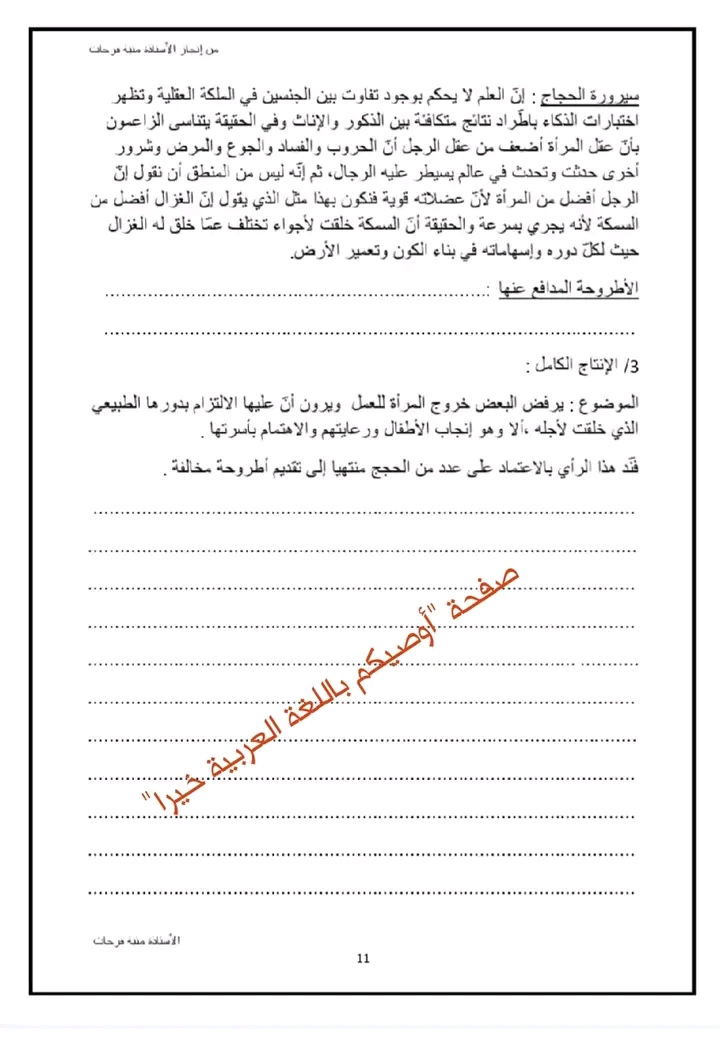 من إنجاز الأستاذة منية فرحات
سيرورة الحجاج : إنّ العلم لا يحكم بوجود تفاوت بين الجنسين في الملكة العقلية وتظهر
اختبارات الذكاء باطّراد نتائج متكافئة بين الذكور والإناث وفي الحقيقة يتناسى الزاعمون
بأنّ عقل المرأة أضعف من عقل الرجل أنّ الحروب والفساد والجوع والمرض وشرور
أخرى حدثت وتحدث في عالم يسيطر عليه الرجال، ثم إنّه ليس من المنطق أن نقول إنّ
الرجل أفضل من المرأة لأنّ عضلاته قوية فنكون بهذا مثل الذي يقول إنّ الغزال أفضل من
السمكة لأنه يجري بسرعة والحقيقة أنّ السمكة خلقت لأجواء تختلف عمّا خلق له الغزال
حيث لكلّ دوره وإسهاماته في بناء الكون وتعمير الأرض.
الأطروحة المدافع عنها :
3/ الإنتاج الكامل :
الموضوع : يرفض البعض خروج المرأة للعمل ويرون أنّ عليها الالتزام بدورها الطبيعي
الذي خلقت لأجله ،ألا وهو إنجاب الأطفال ورعايتهم والاهتمام بأسرتها .
فنّد هذا الرأي بالاعتماد على عدد من الحجج منتهيا إلى تقديم أطروحة مخالفة .
صفحة "أوصيكم باللغة العربية خيرا"
الأستاذة منية فرحات
11